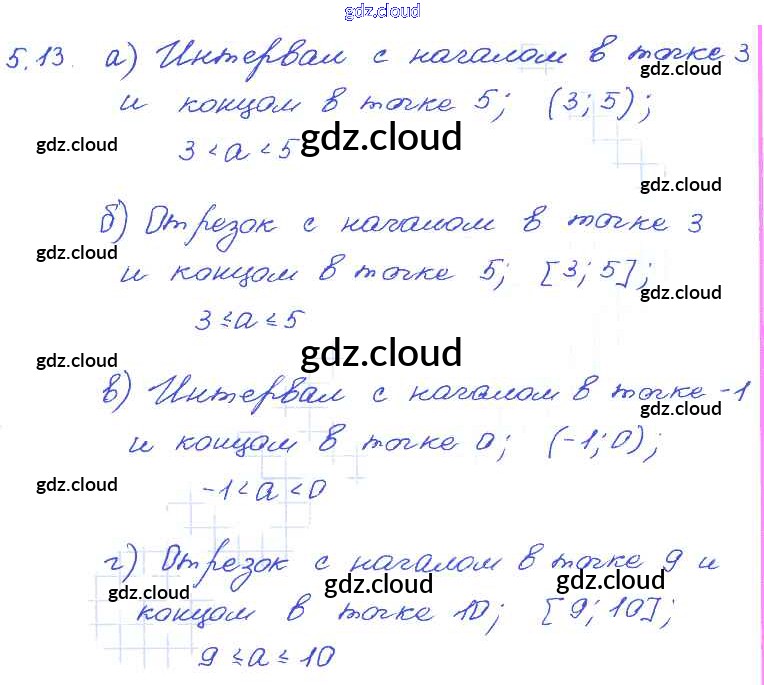 gdz.cloud
5.13. а) Интервал с началом в точке 3
gdz.cloud
и концом в точке 5; (3; 5);
gdz.cloud gdz.cloud
3 < a < 5
gdz.cloud
б) Отрезок с началом в точке 3
gdz.cloud
и концом в точке 5; [3; 5];
gdz.cloud
3 ≤ a ≤ 5
gdz.cloud gdz.cloud
в) Интервал с началом в точке -1
gdz.cloud
и концом в точке 0; (-1; 0);
gdz.cloud gdz.cloud
-1 < a < 0
г) Отрезок с началом в точке 9 и
gdz.cloud gdz.cloud gdz.cloud
концом в точке 10; [9; 10];
9 ≤ a ≤ 10